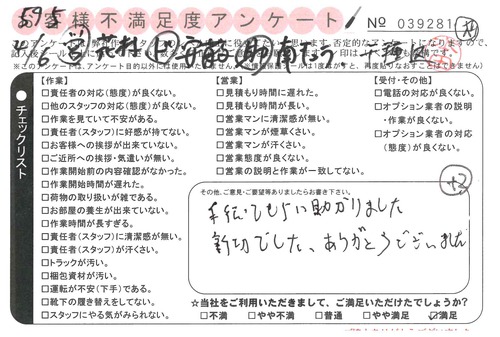 お客様不満足度アンケート
No 039281
チェックリスト
【作業】
□責任者の対応(態度)が良くない。
□他のスタッフの対応(態度)が良くない。
□作業を見ていて不安がある。
□責任者(スタッフ)に好感が持てない。
□お客様への挨拶が出来ていない。
□ご近所への挨拶・気遣いが無い。
□作業開始前の内容確認がなかった。
□作業開始時間が遅れた。
□荷物の取り扱いが雑である。
□お部屋の養生が出来ていない。
□作業時間が長すぎる。
□責任者(スタッフ)に清潔感が無い。
□責任者(スタッフ)が汗くさい。
□トラックが汚い。
□梱包資材が汚い。
□運転が不安(下手)である。
□靴下の履き替えをしてない。
□スタッフにやる気がみられない。
【営業】
□見積もり時間に遅れた。
□見積もり時間が長い。
□営業マンに清潔感が無い。
□営業マンが煙草くさい。
□営業マンが汗くさい。
□営業態度が良くない。
□営業の説明と作業が一致してない。
【受付・その他】
□電話の対応が良くない。
□オプション業者の説明
・作業が良くない。
□オプション業者の対応
(態度)が良くない。
その他、ご意見・ご要望等ありましたらお書き下さい。
手伝ってもらい助かりました
親切でした、ありがとうございました
☆当社をご利用いただきまして、ご満足いただけたでしょうか?
□不満 □やや不満 □普通 □やや満足 ☑満足